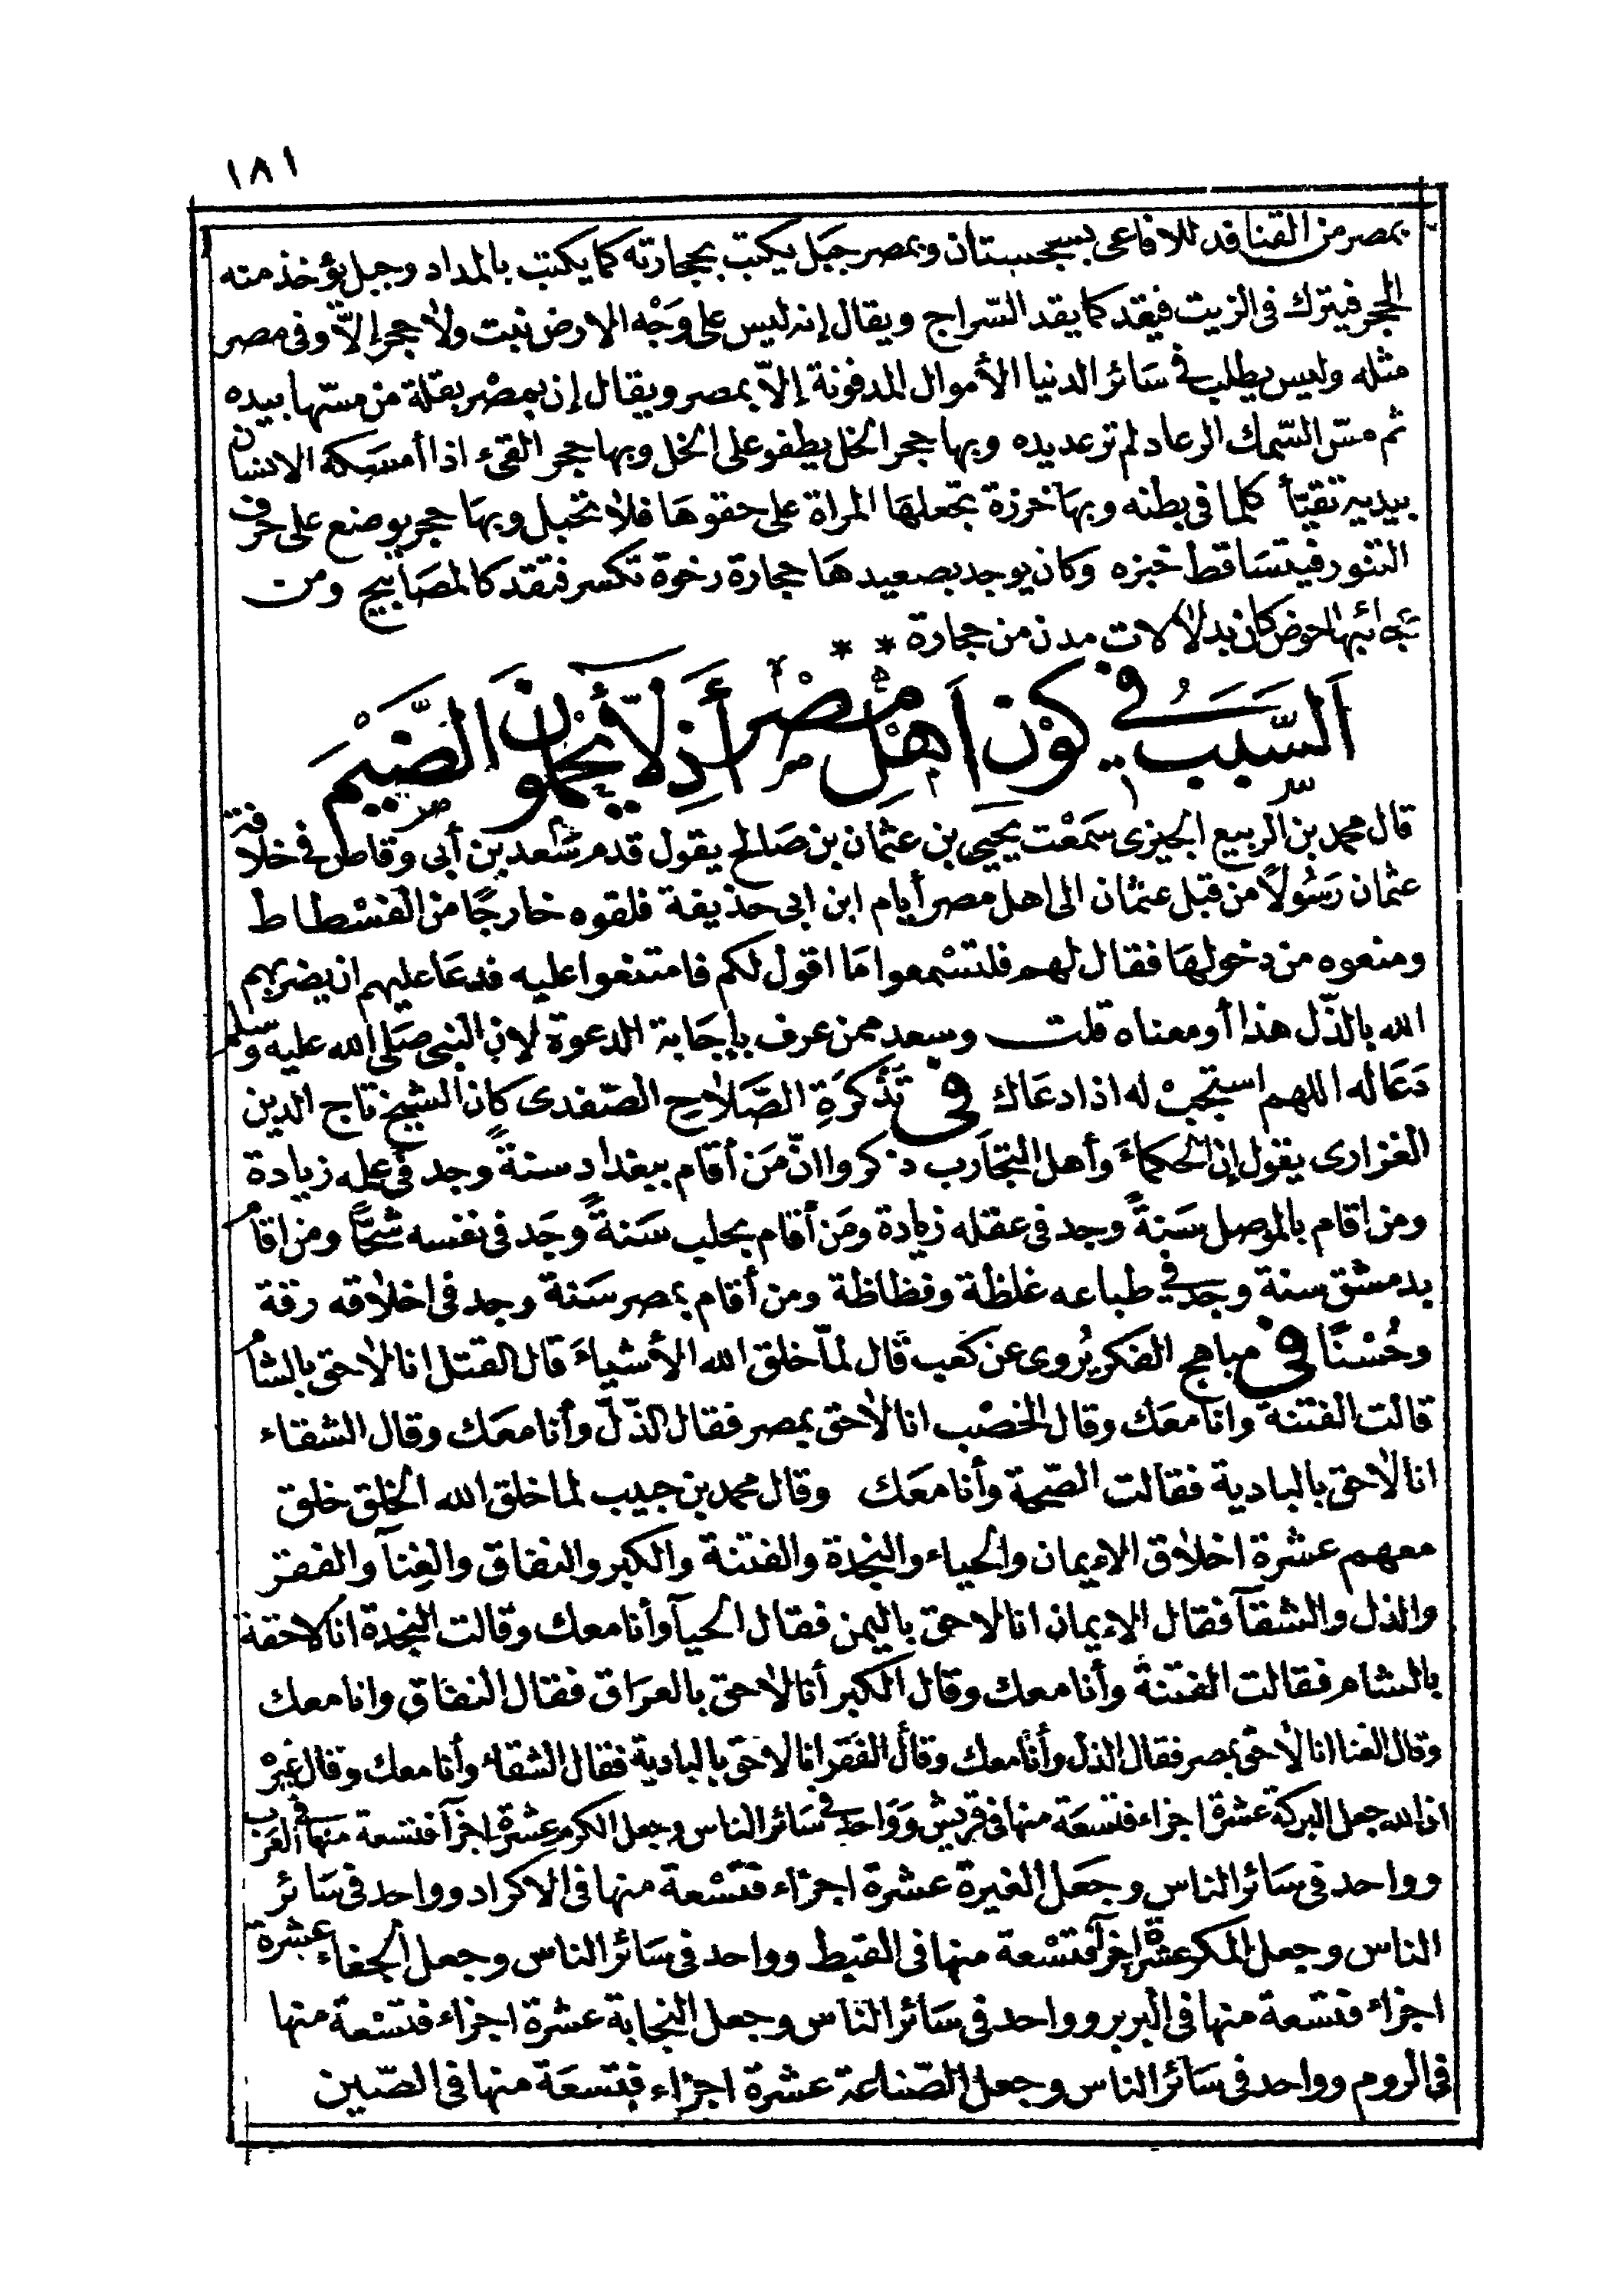 ١٨١
بمصر من القنافد للافاعى بسجستان وبمصر جبل يكتب بحجارته كما يكتب بالمداد وجبل يؤخذ منه
الحجر فيترك فى الزيت فيقد كما يقد السّراج ويقال إنه ليس على وَجْه الارض نبت ولا حجر إلاّ وفى مصر
مثله وليس يطلب فى سَائر الدنيا الأموال المدفونة إلاّ بمصر ويقال إن بمصْر بقلة من مسّها بيده
ثم مسّ السّمك الرعاد لم ترعد يده وبها حجر الخل يطفو على الخل وبها حجر القىء اذا أمسَكه الانسان
بيديه تقيّأ كلما فى بطنه وبهَا خرزة تجعلهَا المراة على حقوهَا فلا تحبل وبهَا حجر يوضع على حرف
التنور فيتسَاقط خبزه وكان يوجد بصعيدهَا حجارة رخوة تكسر فتقد كالمصَابيح ومن
عجائبها الحوض كان بدلالات مدن من حجارة * *
اَلسَّبَبُ فى كوْن اَهْلِ مِصْرَ أَذِلّاءَ يَحْملُونَ الضَّيْمَ
قال محمد بن الربيع الجيزى سَمعْت يحيى بن عثمان بن صَالح يقول قدم سَعد بن أبى وقاص فى خلافة
عثمان رَسُولاً من قبل عثمان الى اهل مصر أيام ابن ابى حذيفة فلقوه خارجًا من الفسْطاط
ومنعوه من دخولهَا فقال لهم فلتسْمعوا مَا اقول لكم فامتنعوا عليه فدعَا عليهم ان يضربهم
الله بالذّل هذا أو معناه قلت وسعد ممن عرف بإجَابة الدعوة لان النبى صَلى الله عليه وسلم
دَعَا له اللهم استجبْ له اذا دعَاك فى تَذْكرَةِ الصَّلَاحِ الصّفدى كان الشيخ تاج الدين
الفزارى يقول إن الحكماءَ وأهل التجَارب ذكروا انّ مَن أقام ببغداد سنةً وجد فى علمه زيادة
ومن اقام بالموصل سَنةً وجد فى عقله زيادة ومَن أقام بحلب سَنةً وجَد فى نفسه شحًّا ومن اقام
بدمشق سنة وجد فى طباعه غلظة وفظاظة ومن أقام بمصر سَنة وجد فى اخلاقه رقة
وحُسْنًا فى مباهج الفكر يُروى عن كعب قال لمّا خلق الله الأشياءَ قال القتل انا لاحق بالشام
قالت الفتنة وانا معَك وقال الخصْب انا لاحق بمصر فقال الذّلّ وأنا معَك وقال الشقاء
انا لاحق بالبادية فقالت الصّحة وأنا معَك وقال محمد بن حبيب لما خلق الله الخلق خلق
معهم عشرة اخلاق الايمان والحياء والنجدة والفتنة والكبر والنفاق والغِنآ والفقر
والذل والشقآ فقال الايمان انا لاحق باليمن فقال الحيآ وأنا معك وقالت النجدة انا لاحقة
بالشام فقالت الفتنة وأنا معك وقال الكبر أنا لاحق بالعرَاق فقال النفاق وانا معك
وقال الغنا انا لاحق بمصر فقال الذل وأنا معك وقال الفقر انا لاحق بالبادية فقال الشقاء وأنا معك وقال غيرْ
ان الله جعل البركة عشرة اجزاء فتسعَة منها فى قريش وَوَاحد فى سَائر الناس وجعل الكرم عشرة اجزآ فتسعة منها فى العَرب
وواحد فى سَائر الناس وجعَل الغيرة عشرة اجزاء فتسْعة منها فى الاكراد وواحد فى سَائر
الناس وجعل المكر عشرة اجزآ فتسْعة منها فى القبط وواحد فى سَائر الناس وجعل الجفاء عشرة
اجزاء فتسعة منها فى البربر وواحد فى سَائر النَاس وجعل النجابة عشرة اجزاء فتسْعة منها
فى الروم وواحد فى سَائر الناس وجعل الصّناعة عشرة اجزاء فتسعَة منها فى الصّين